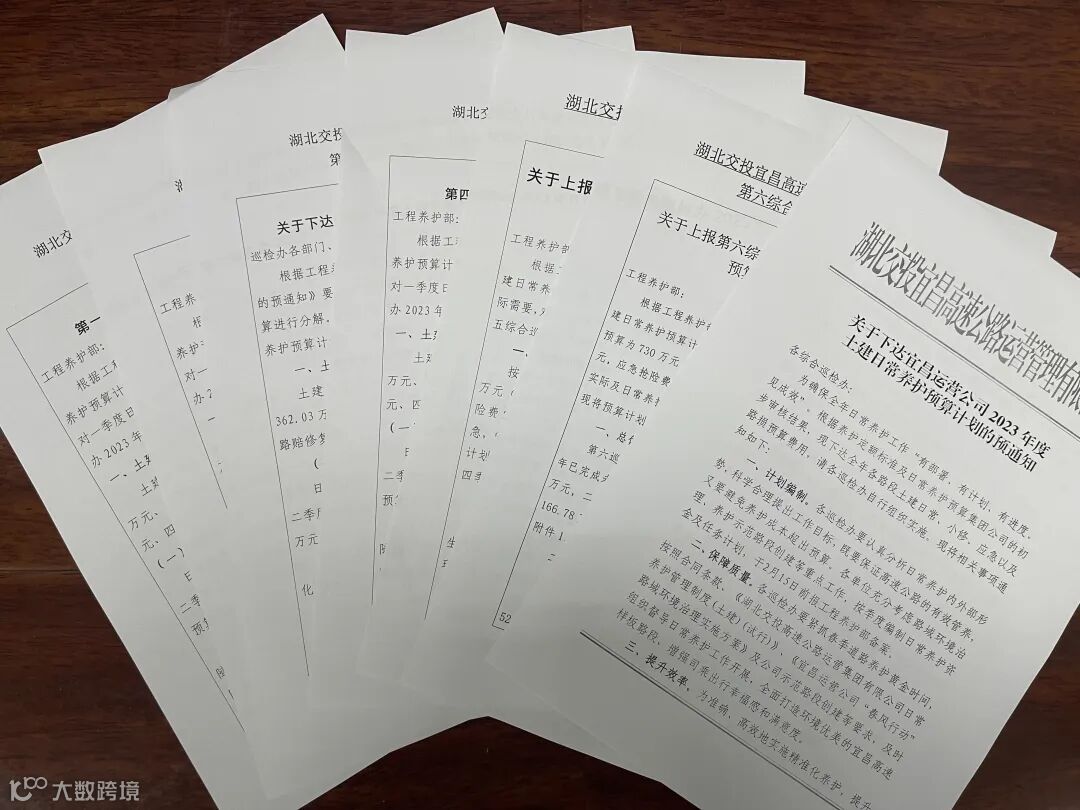 湖北交
第一
工程养护部：
根据工
养护预算计
对一季度日
办2023年
一、土建
土建
万元、
元、四
（一）
日
二季
预算
附
工程养
根
养护
对一
办2
一
湖北交投
第
关于下达
巡检办各部门、
根据工程
的预通知》要
算进行分解，
养护预算计
一、土
土建
362.03万
路赔修复
（
日
二季度
万元
化
湖北交
第四
工程养护部：
根据工
养护预算计
对一季度日
办2023年
一、土建
土建
万元、
元、四
（一
日
二季
预算
附
湖北交投
关于上报
工程养护部
根据
建日常养
际需要，对
五综合巡
一、
按
万元（
险费
急，
计划
四季
湖北交投宜昌高速
第六综合
关于上报第六综
预算
工程养护部：
根据工程养护
建日常养护预算计
预算为730万元
元，应急抢险费
实际及日常养护
现将预算计划
一、总体
第六巡
年已完成
万元，二
166.78
附件1
52
湖北交投宜昌高速公路运营管理有限
关于下达宜昌运营公司2023年度
土建日常养护预算计划的预通知
各综合巡检办：
为确保全年日常养护工作“有部署、有计划、有进度、
见成效”。根据养护定额标准及日常养护预算集团公司的初
步审核结果，现下达全年各路段土建日常、小修、应急以及
路损预算费用，请各巡检办自行组织实施。现将相关事项通
知如下：
一、计划编制。各巡检办要认真分析日常养护内外部形
势，科学合理提出工作目标，既要保证高速公路的有效管养，
又要避免养护成本超出预算。各单位充分考虑路域环境治
理、养护示范路段创建等重点工作，按季度编制日常养护资
金及任务计划，于2月15日前报工程养护部备案。
二、保障质量。各巡检办要紧抓春季道路养护黄金时间，
按照合同条款、《湖北交投高速公路运营集团有限公司日常
养护管理制度(土建)(试行)》、《宜昌运营公司“春风行动”
路域环境治理实施方案》及公司示范路段创建等要求，及时
组织督导日常养护工作开展，全面打造环境优美的宜昌高速
样板路段，增强司乘出行幸福感和满意度。
三、提升效率。为准确、高效地实施精准化养护，提升
大数跨境